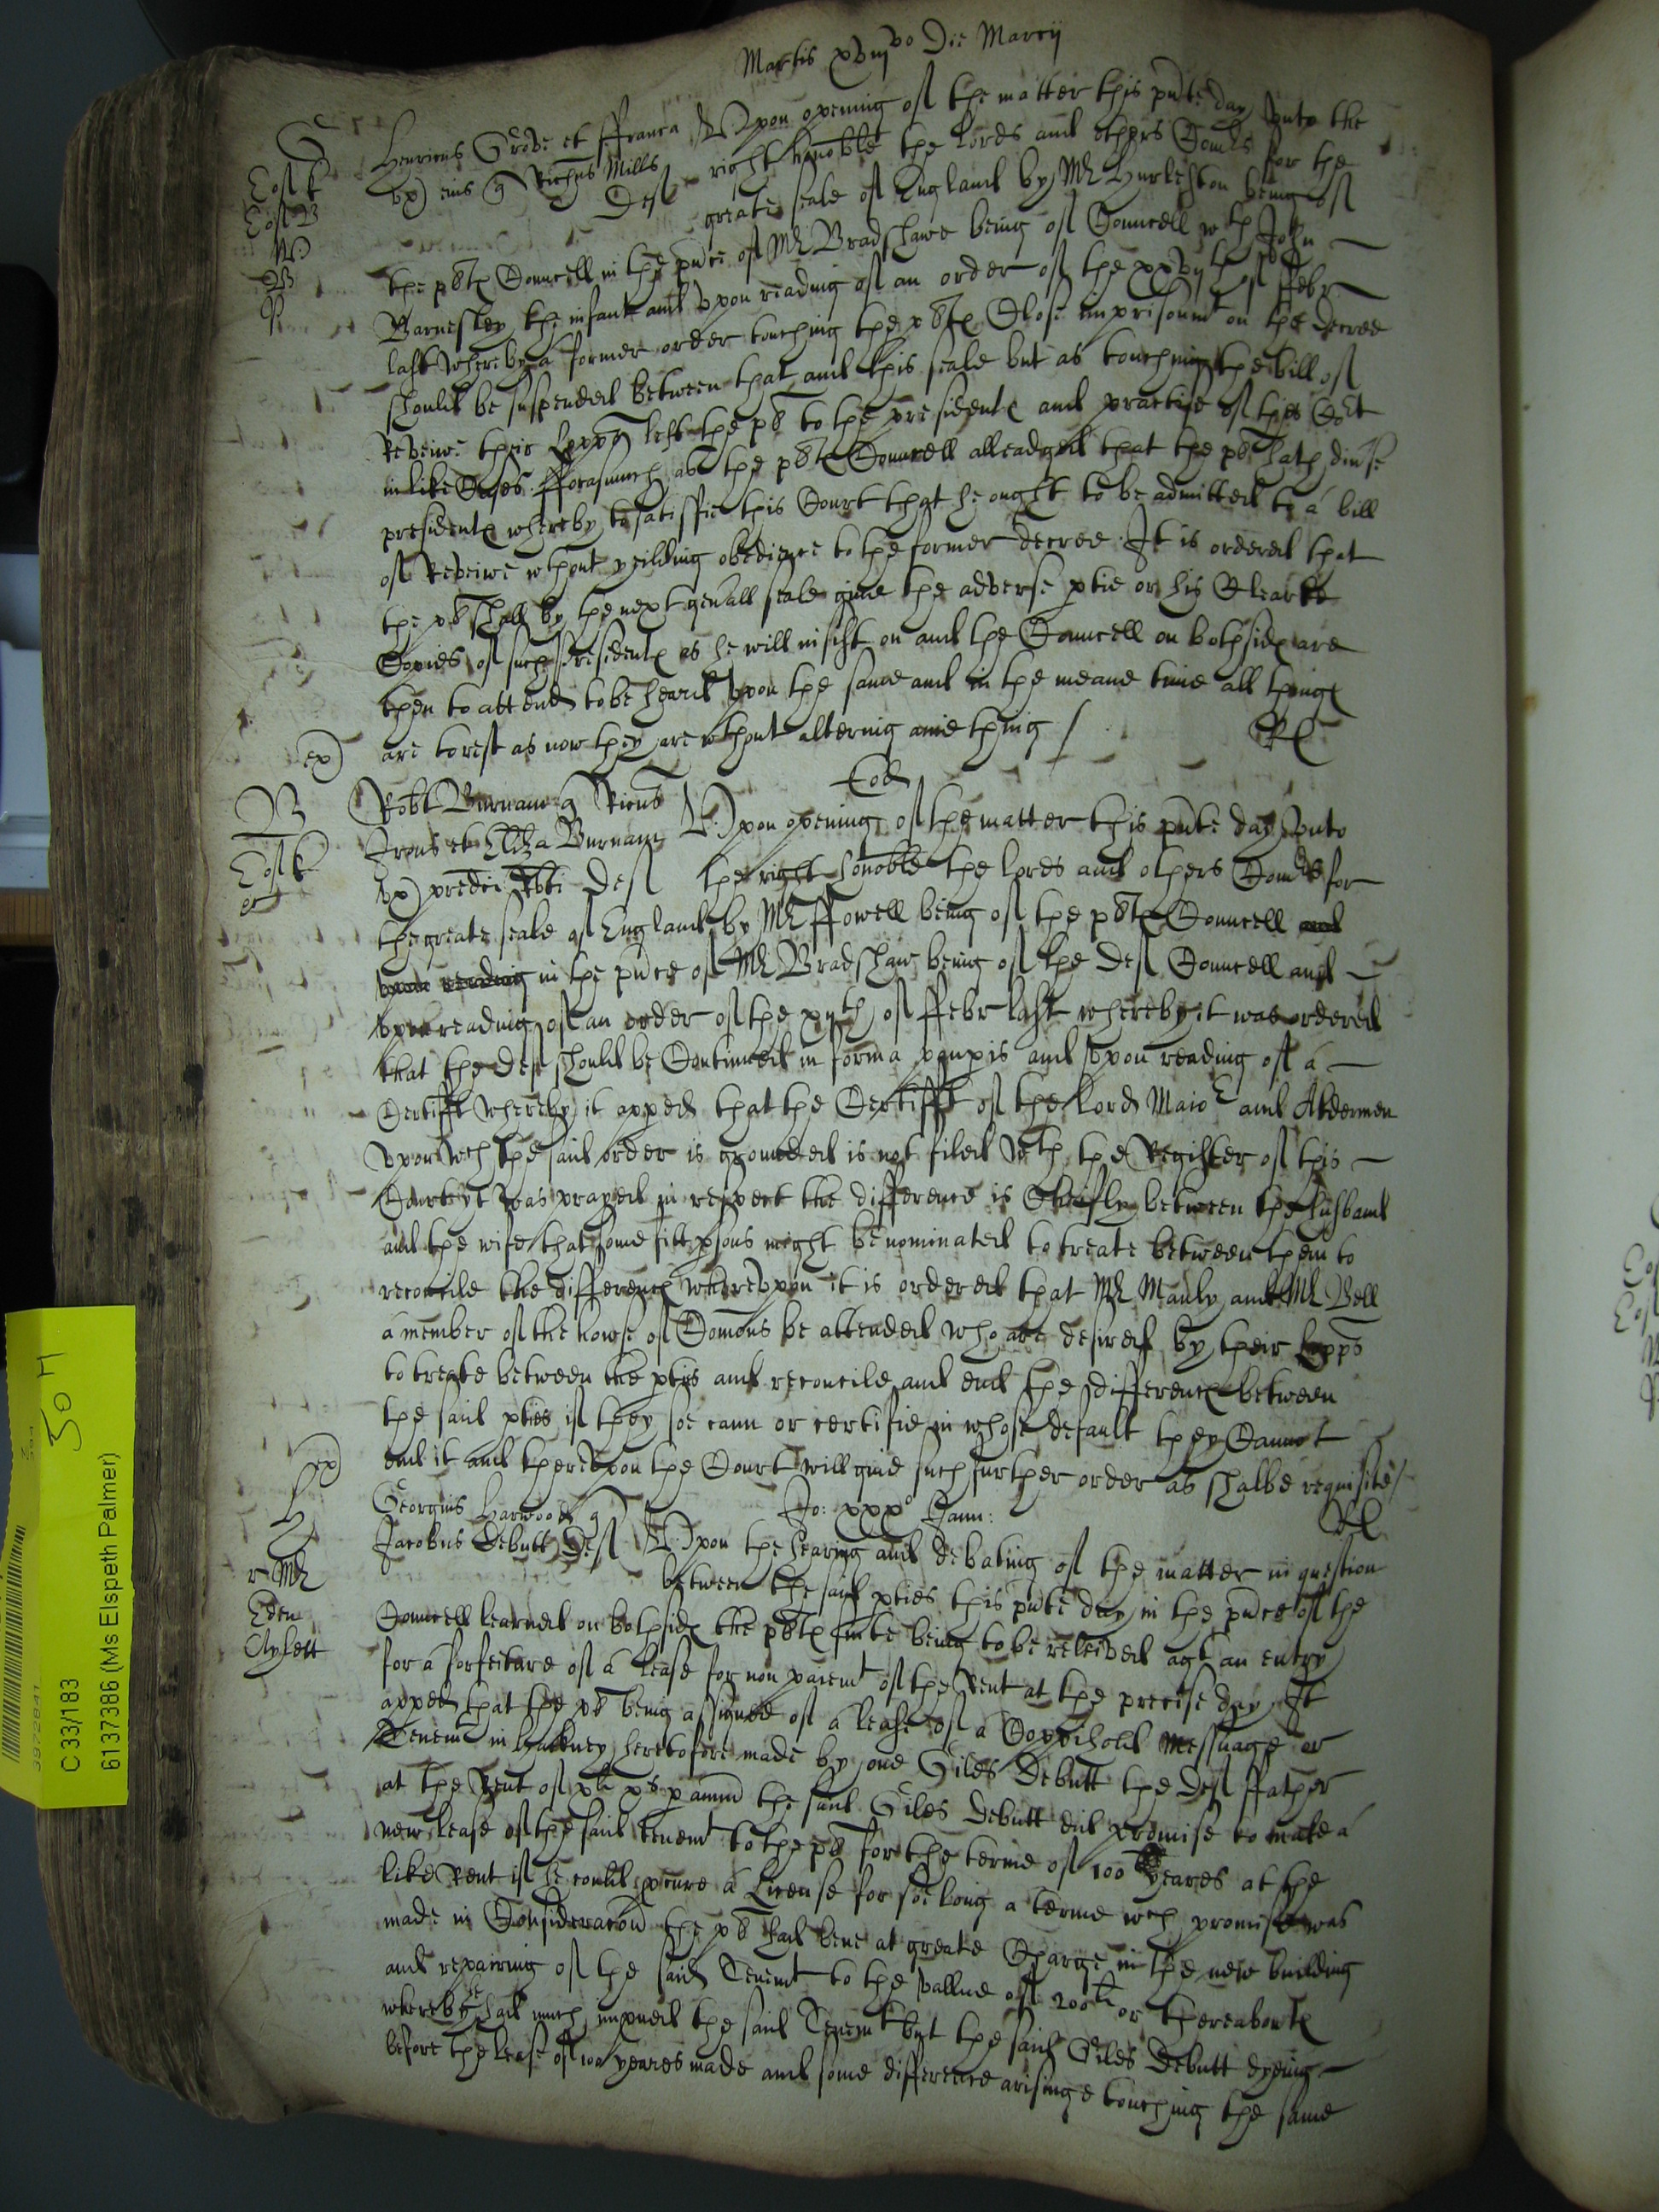 Martis xviijvo Die Marcij
G
Henricus Grove et ffranca Upon opening of the matter this pnte day unto the
ux eius q Richus Mills Def right honoble the lords and others Comrs for the
greate seale of England by Mr Hurleston being of
the plts Councell in the pnce of Mr Bradshawe being of Councell wth John
Barnesley the infant and upon reading of an order of the xxvijth of Febr
last whereby a former order touching the plts Close imprisonmt on the decree
should be suspended between that and this seale but as touching the bill of
Reveiwe their Lopps left the plt to the presidents and practise of this Cort
in like Cases. fforasmuch as the plts Councell alleadged that the plt hath divse
presidents whereby to satisffie this Court that he ought to be admitted to a bill
of Reveiwe wthout yeilding obedience to the former decree. It is ordered that
the plt shall by the next genall seale give the adverse ptie or his Clearke
Copies of such Presidents as he will insist on and the Councell on both sides are
then to attend to be heard upon the same and in the meane time all things
are to rest as now they are wthout altering anie thing /
RC
ex)
B
Eod
Robt Burnam q Ricus
Irons et Eliza Burnam Upon opening of the matter this pnte day unto
ux predci Robti Def the right honoble the lords and others Comrs for
the greate seale of England by Mr ffowell being of the plts Councell and
upon reading in the pnce of Mr Bradshaw being of the Def Councell and
upon reading of an order of the xijth of ffebr last whereby it was ordered
that the Def should be Continued in forma paupis and upon reading of a
Certifft whereby it apped that the Certifft of the Lord Maior and Aldermen
upon wch the said order is grounded is not filed wth the Register of this
Court yt was prayed in respect the difference is Cheifly between the husband
and the wife that some fitt psons might be nominated to treate between them to
reconcile the differences whereupon it is ordered that Mr Manly and Mr Bell
a member of the howse of Comons be attended who are desired by their Lopps
to treate between the pties and reconcile and end the differences between
the said pties if they soe cann or certifie in whose default they Cannot
end it and thereupon the Court will give such further order as shalbe requisite /
RC
ex)
H
Jo: xxxo Janu:
Georgius Harwood q
Jacobus Debutt Def Upon the hearing and debating of the matter in question
r Mr
Eden
Aylett
between the said pties this pnte day in the pnce of the
Councell learned on both sides the plts suite being to be releived agt an entry
for a forfeiture of a lease for non paiemt of the Rent at the precise day It
apped that the plt being assignee of a lease of a Coppihold Messuage or
Tenemt in Hackney heretofore made by one Giles Debutt the Def ffather
at the Rent of xli xs p annu the said Giles Debutt did promise to make a
new lease of the said tenemt to the plt for the terme of 100 yeares at the
like Rent if he could pcure a License for soe long a terme wch promise was
made in Consideracon the plt had bene at greate Charge in the new building
and repairing of the said Tenemt to the vallue of 200li or thereabouts
whereby he had much impued the said Tenemt but the said Giles Debutt dyeing
before the lease of 100 yeares made and some difference arisinge touching the same
50 H
C 33/183
6137386 (Ms Elspeth Palmer)